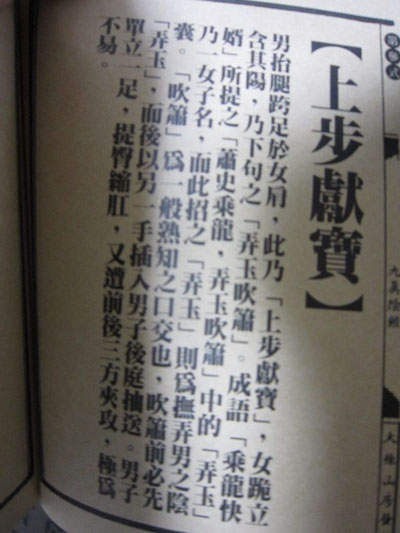 【上步獻寶】
男抬腿跨足於女肩，此乃「上步獻寶」，女跪立
含其陽，乃下句之「弄玉吹簫」。成語「乘龍快
婿」所提之「蕭史乘龍，弄玉吹簫」中的「弄玉」
乃一女子名，而此招之「弄玉」則為撫弄男之陰
囊。「吹簫」為一般熟知之口交也，吹簫前必先
「弄玉」，而後以另一手插入男子後庭抽送。男子
單立一足，提臀縮肛，又遭前後三方夾攻，極為
不易。